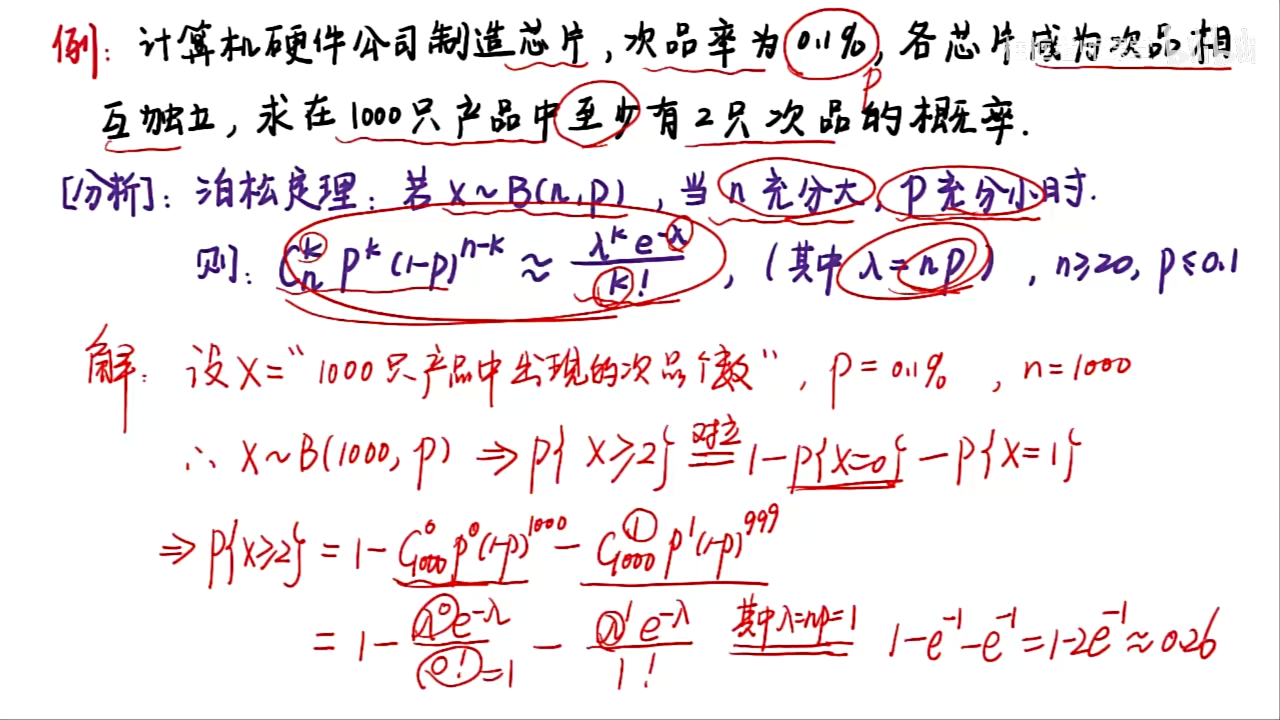 例：计算机硬件公司制造芯片，次品率为0.1%，各芯片成为次品相
p
互独立，求在1000只产品中至少有2只次品的概率.
[分析]：泊松定理：若 X~B(n,p)，当 n 充分大，p 充分小时.
则：C_n^k p^k (1-p)^{n-k} ≈ \frac{λ^k e^{-λ}}{k!}，(其中 λ=np)，n≥20, p≤0.1
解：设X=“1000只产品中出现的次品个数”，p=0.1%，n=1000
∴ X~B(1000, p) ⇒ P{X≥2} 对立 = 1-P{X=0}-P{X=1}
⇒ P{X≥2} = 1-C_{1000}^0 p^0 (1-p)^{1000} - C_{1000}^1 p^1 (1-p)^{999}
= 1-\frac{λ^0 e^{-λ}}{0!=1} - \frac{λ^1 e^{-λ}}{1!} 其中λ=np=1 = 1-e^{-1}-e^{-1}=1-2e^{-1}≈0.26